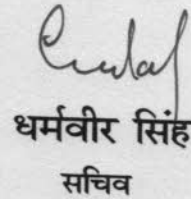 धर्मवीर सिंह
सचिव